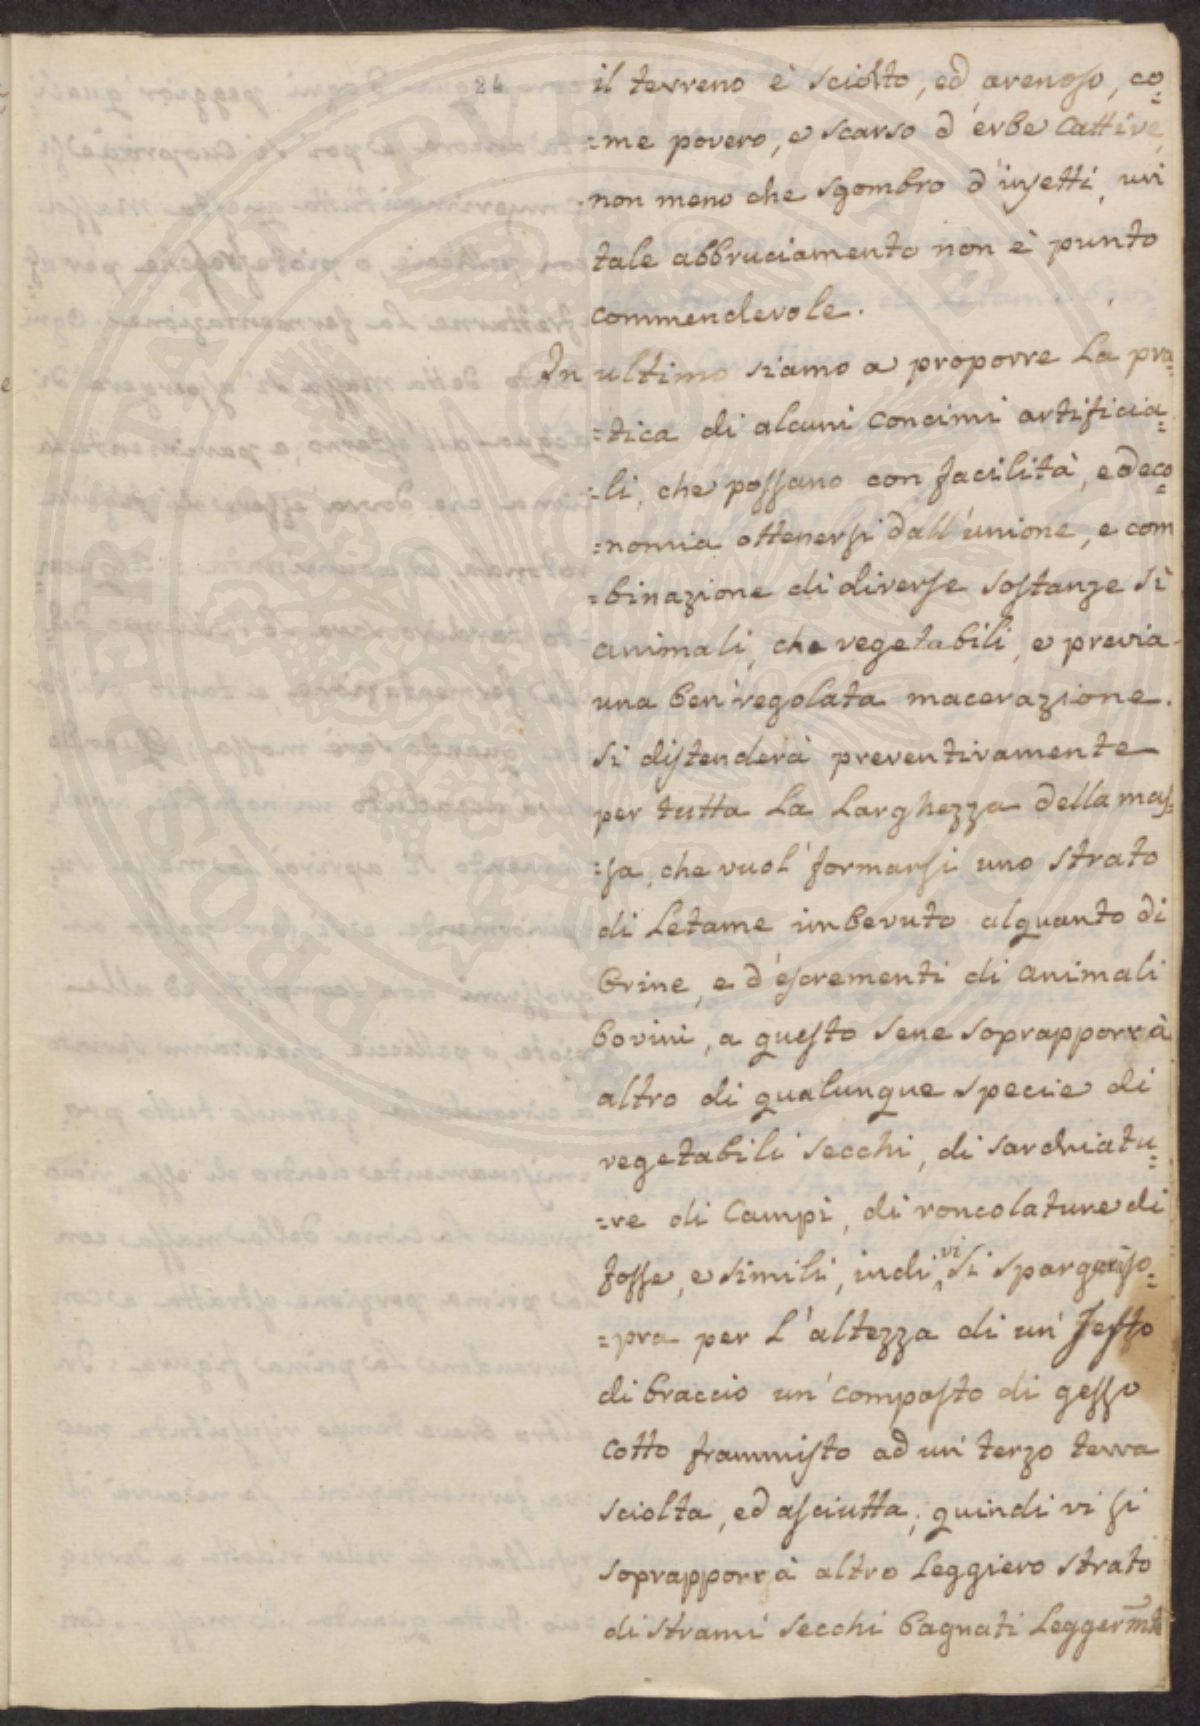 24
il terreno è sciolto, ed arenoso, co=
=me povero, e scarso d'erbe cattive,
non meno che sgombro d'insetti, un
tale abbruciamento non è punto
commendevole.
In ultimo siamo a proporre la pra=
=tica di alcuni concimi artificia=
=li, che possano con facilità, ed eco=
=nomia ottenersi dall'unione, e com
=binazione di diverse sostanze sì
animali, che vegetabili, e previa
una ben' regolata macerazione.
Si distenderà preventivamente
per tutta la larghezza della mas=
=sa, che vuol' formarsi uno strato
di letame imbevuto alquanto di
Orine, e d'escrementi di animali
bovini, a questo sene soprapporrà
altro di qualunque specie di
vegetabili secchi, di sarchiatu=
=re di Campi, di roncolature di
fosse, e simili, indi vi si spargerà so=
=pra per l'altezza di un' sesto
di braccio un' composto di gesso
cotto frammisto ad un' terzo terra
sciolta, ed asciutta, quindi vi si
soprapporrà altro leggiero strato
di strami secchi bagnati leggermte